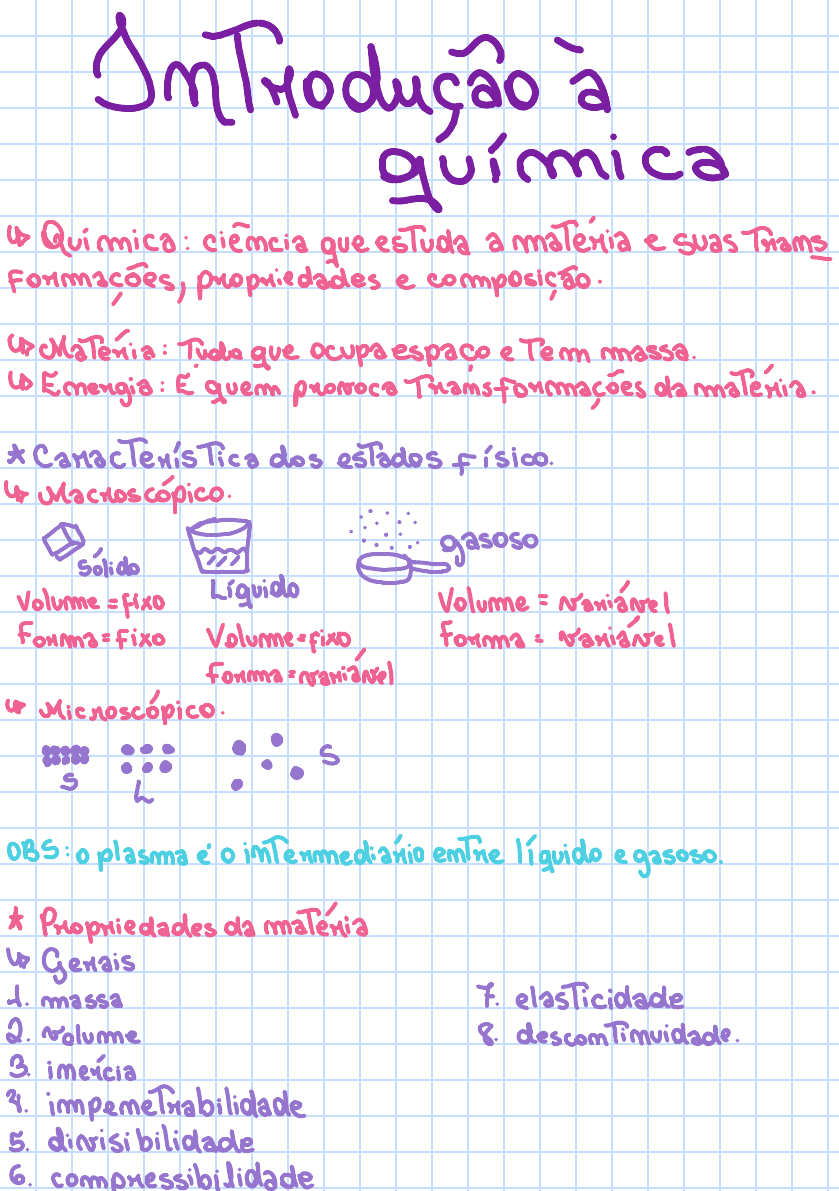 Introdução à
química
↳ Química: ciência que estuda a matéria e suas trans
formações, propriedades e composição.
↳ Matéria: Tudo que ocupa espaço e tem massa.
↳ Energia: É quem provoca transformações da matéria.
* Característica dos estados físico.
↳ Macroscópico.
sólido
Volume = fixo
Forma = fixo
Líquido
Volume = fixo
forma = variável
gasoso
Volume = variável
forma = variável
↳ Microscópico.
S
L
S
OBS: o plasma é o intermediário entre líquido e gasoso.
* Propriedades da matéria
↳ Gerais
1. massa
2. volume
3. inércia
4. impenetrabilidade
5. divisibilidade
6. compressibilidade
7. elasticidade
8. descontinuidade.